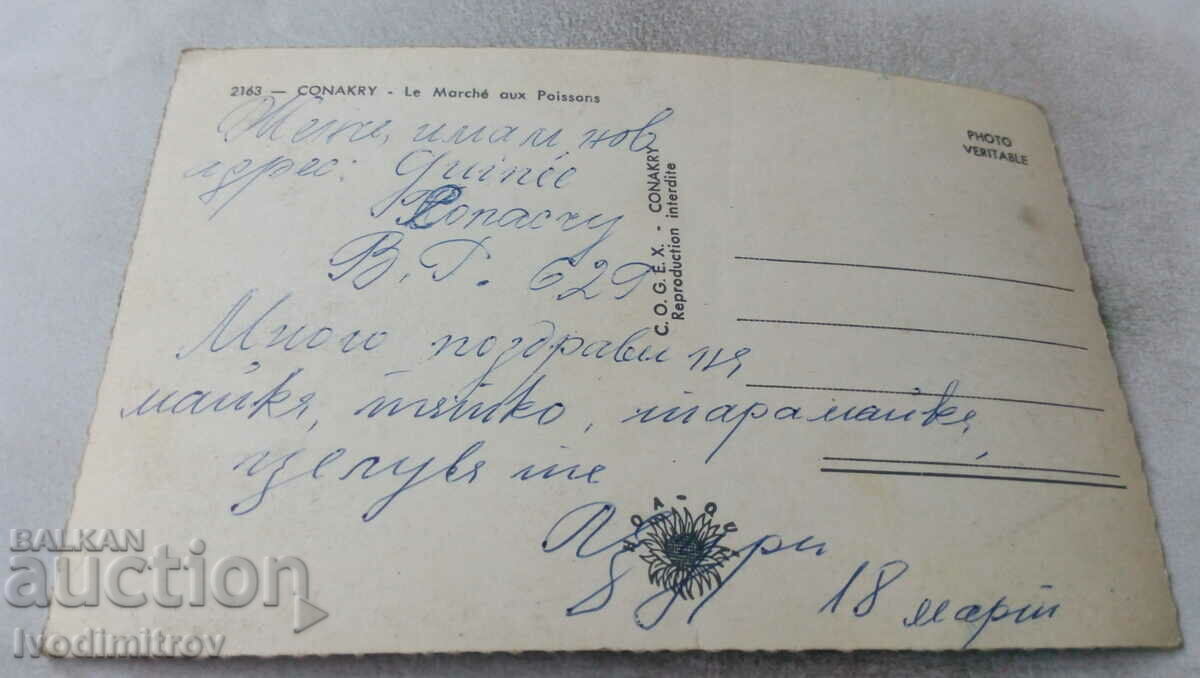 2163 — CONAKRY - Le Marché aux Poissons
PHOTO
VERITABLE
C. O. G. E. X. - CONAKRY
Reproduction interdite
Жени, имам нов
адрес: Guinée
Conacry
B.P. 629
Много поздрави на
майка, татко,
целува те
18 март
BALKAN
auction
Ivodimitrov